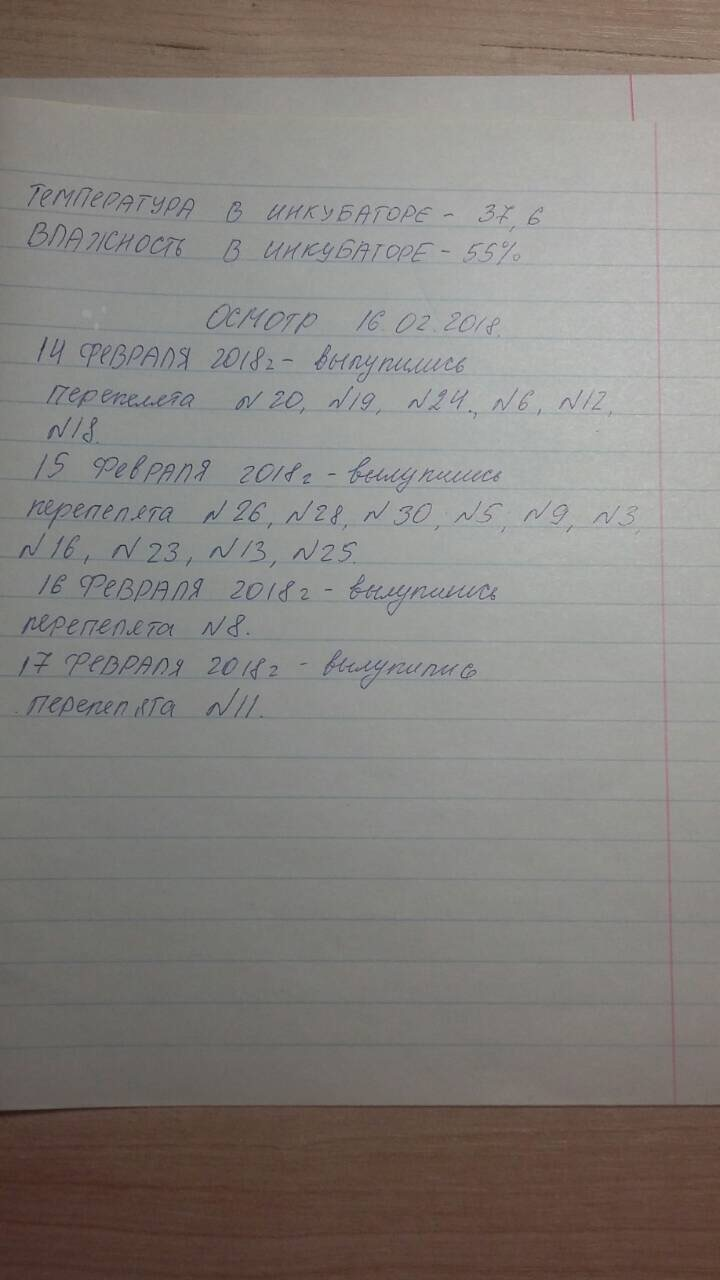 Температура в инкубаторе - 37,6
Влажность в инкубаторе - 55%
Осмотр 16.02.2018.
14 февраля 2018г - вылупились
перепелята №20, №19, №24., №6, №12,
№18.
15 февраля 2018г - вылупились
перепелята №26, №28, №30, №5, №9, №3,
№16, №23, №13, №25.
16 февраля 2018г - вылупились
перепелята №8.
17 февраля 2018г - вылупились
перепелята №11.